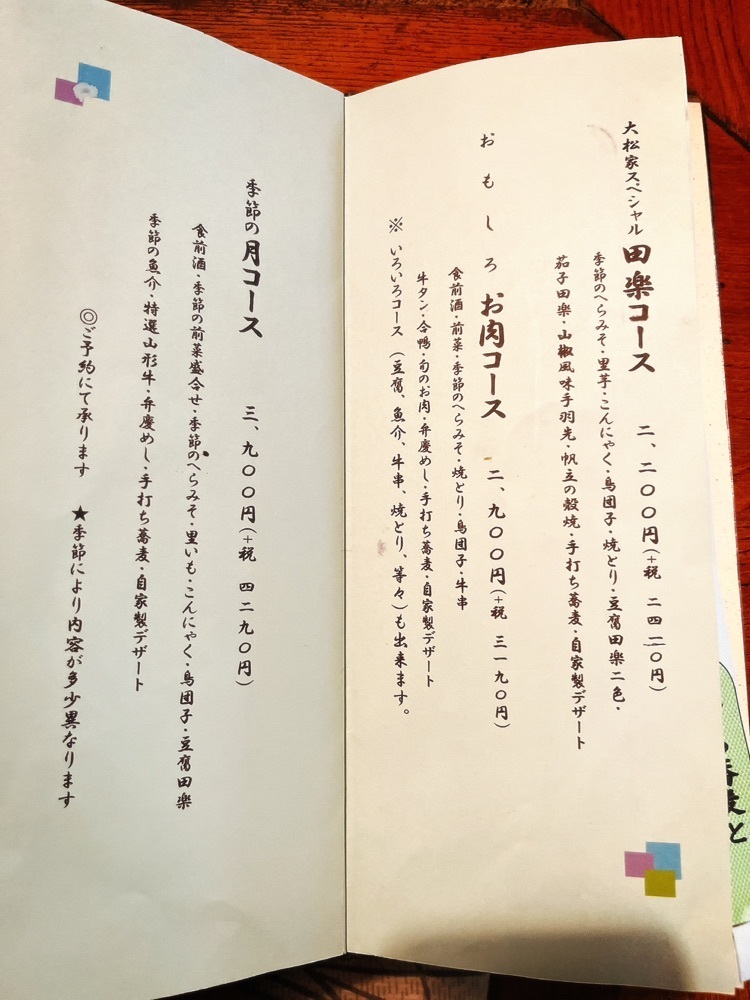 大松家スペシャル 田楽コース 二、二〇〇円(+税 二四二〇円)
季節のへらみそ・里芋・こんにゃく・鳥団子・焼とり・豆腐田楽二色・
茄子田楽・山椒風味手羽先・帆立の殻焼・手打ち蕎麦・自家製デザート
おもしろ お肉コース 二、九〇〇円(+税 三一九〇円)
食前酒・前菜・季節のへらみそ・焼とり・鳥団子・牛串
牛タン・合鴨・旬のお肉・弁慶めし・手打ち蕎麦・自家製デザート
※ いろいろコース (豆腐、魚介、牛串、焼とり、等々)も出来ます。
季節の月コース 三、九〇〇円(+税 四二九〇円)
食前酒・季節の前菜盛合せ・季節のへらみそ・里いも・こんにゃく・鳥団子・豆腐田楽
季節の魚介・特選山形牛・弁慶めし・手打ち蕎麦・自家製デザート
◎ご予約にて承ります ★季節により内容が多少異なります